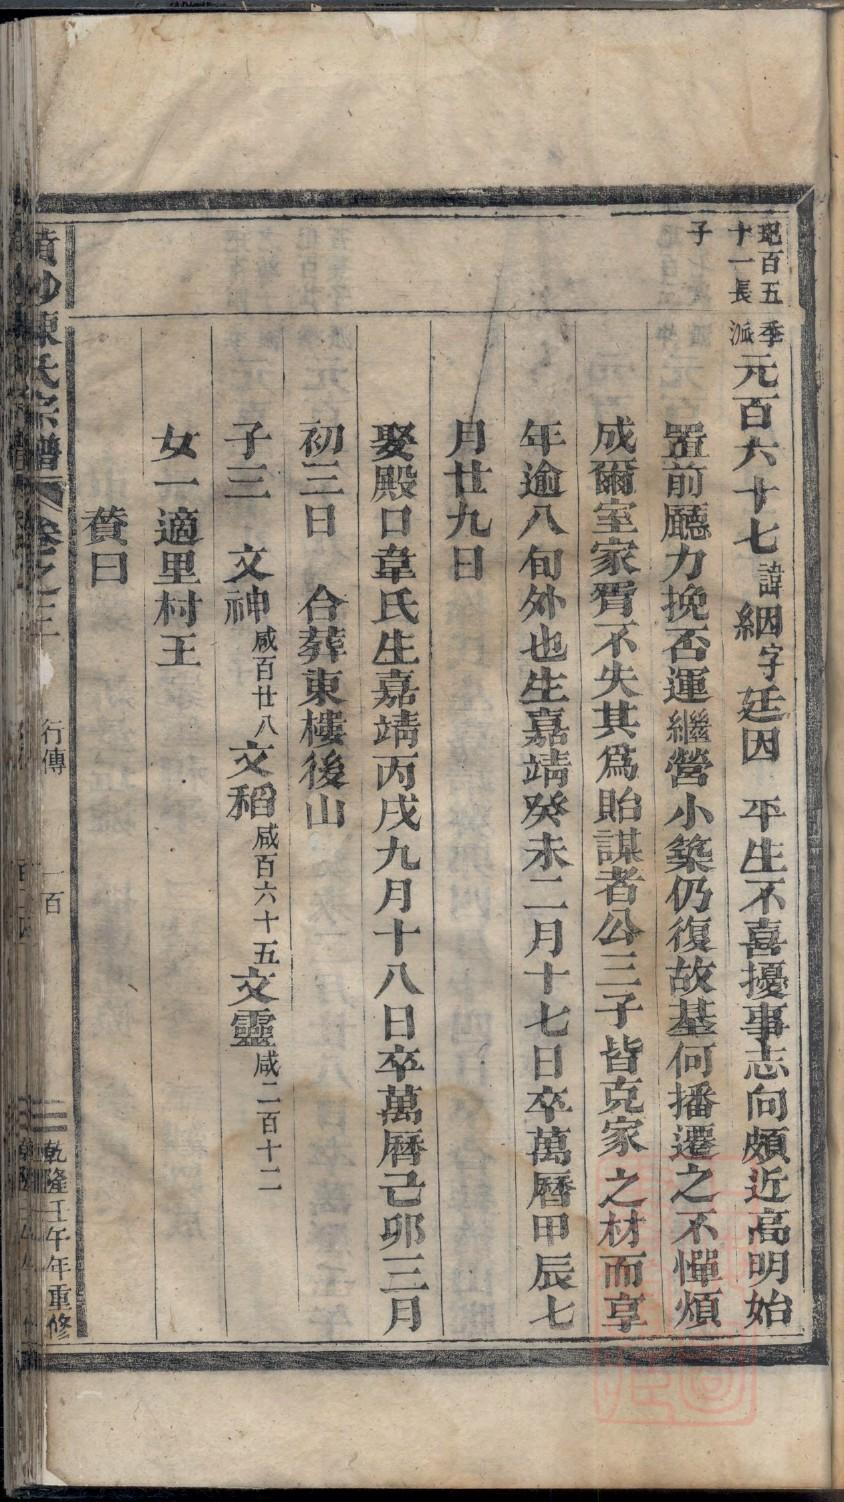 珌百五季
十一長派
子
元百六十七諱絪字廷因 平生不喜擾事志向頗近高明始
置前廳力挽否運繼營小築仍復故基何播遷之不憚煩
成爾室家胥不失其爲貽謀者公三子皆克家之材而享
年逾八旬外也生嘉靖癸未二月十七日卒萬曆甲辰七
月廿九日
娶殿口韋氏生嘉靖丙戌九月十八日卒萬曆己卯三月
初三日 合葬東樓後山
子三 文神咸百廿八 文稻咸百六十五 文靈咸二百十二
女一適里村王
賛曰
陳氏宗譜 卷之三 行傳 一百 乾隆壬午年重修